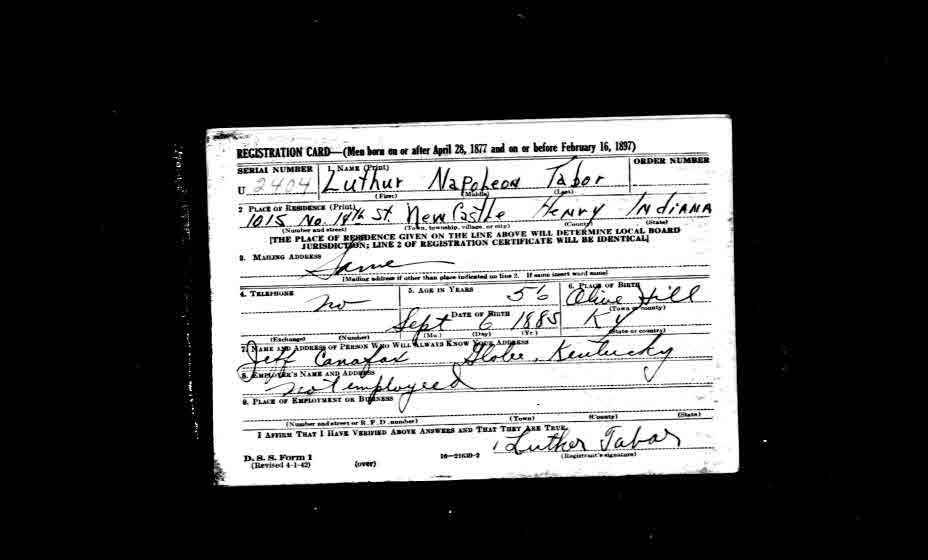 REGISTRATION CARD—(Men born on or after April 28, 1877 and on or before February 16, 1897)
SERIAL NUMBER 1. NAME (Print) ORDER NUMBER
U 2404 Luthur Napoleon Tabor
(First) (Middle) (Last)
2. PLACE OF RESIDENCE (Print)
1015 No. 14th St. New Castle Henry INDIANA
(Number and street) (Town, township, village, or city) (County) (State)
[THE PLACE OF RESIDENCE GIVEN ON THE LINE ABOVE WILL DETERMINE LOCAL BOARD
JURISDICTION; LINE 2 OF REGISTRATION CERTIFICATE WILL BE IDENTICAL]
3. MAILING ADDRESS
Same
[Mailing address if other than place indicated on line 2. If same insert word same]
4. TELEPHONE 5. AGE IN YEARS 6. PLACE OF BIRTH
no 56 Olive Hill
DATE OF BIRTH (Town or county)
Sept 6 1885 Ky
(Exchange) (Number) (Mo.) (Day) (Yr.) (State or country)
7. NAME AND ADDRESS OF PERSON WHO WILL ALWAYS KNOW YOUR ADDRESS
Jeff Canafax Globe, Kentucky
8. EMPLOYER'S NAME AND ADDRESS
not employeed
9. PLACE OF EMPLOYMENT OR BUSINESS
(Number and street or R. F. D. number) (Town) (County) (State)
I AFFIRM THAT I HAVE VERIFIED ABOVE ANSWERS AND THAT THEY ARE TRUE.
Luther Tabor
D. S. S. Form 1 16—21630-2 (Registrant's signature)
(Revised 4-1-42) (over)